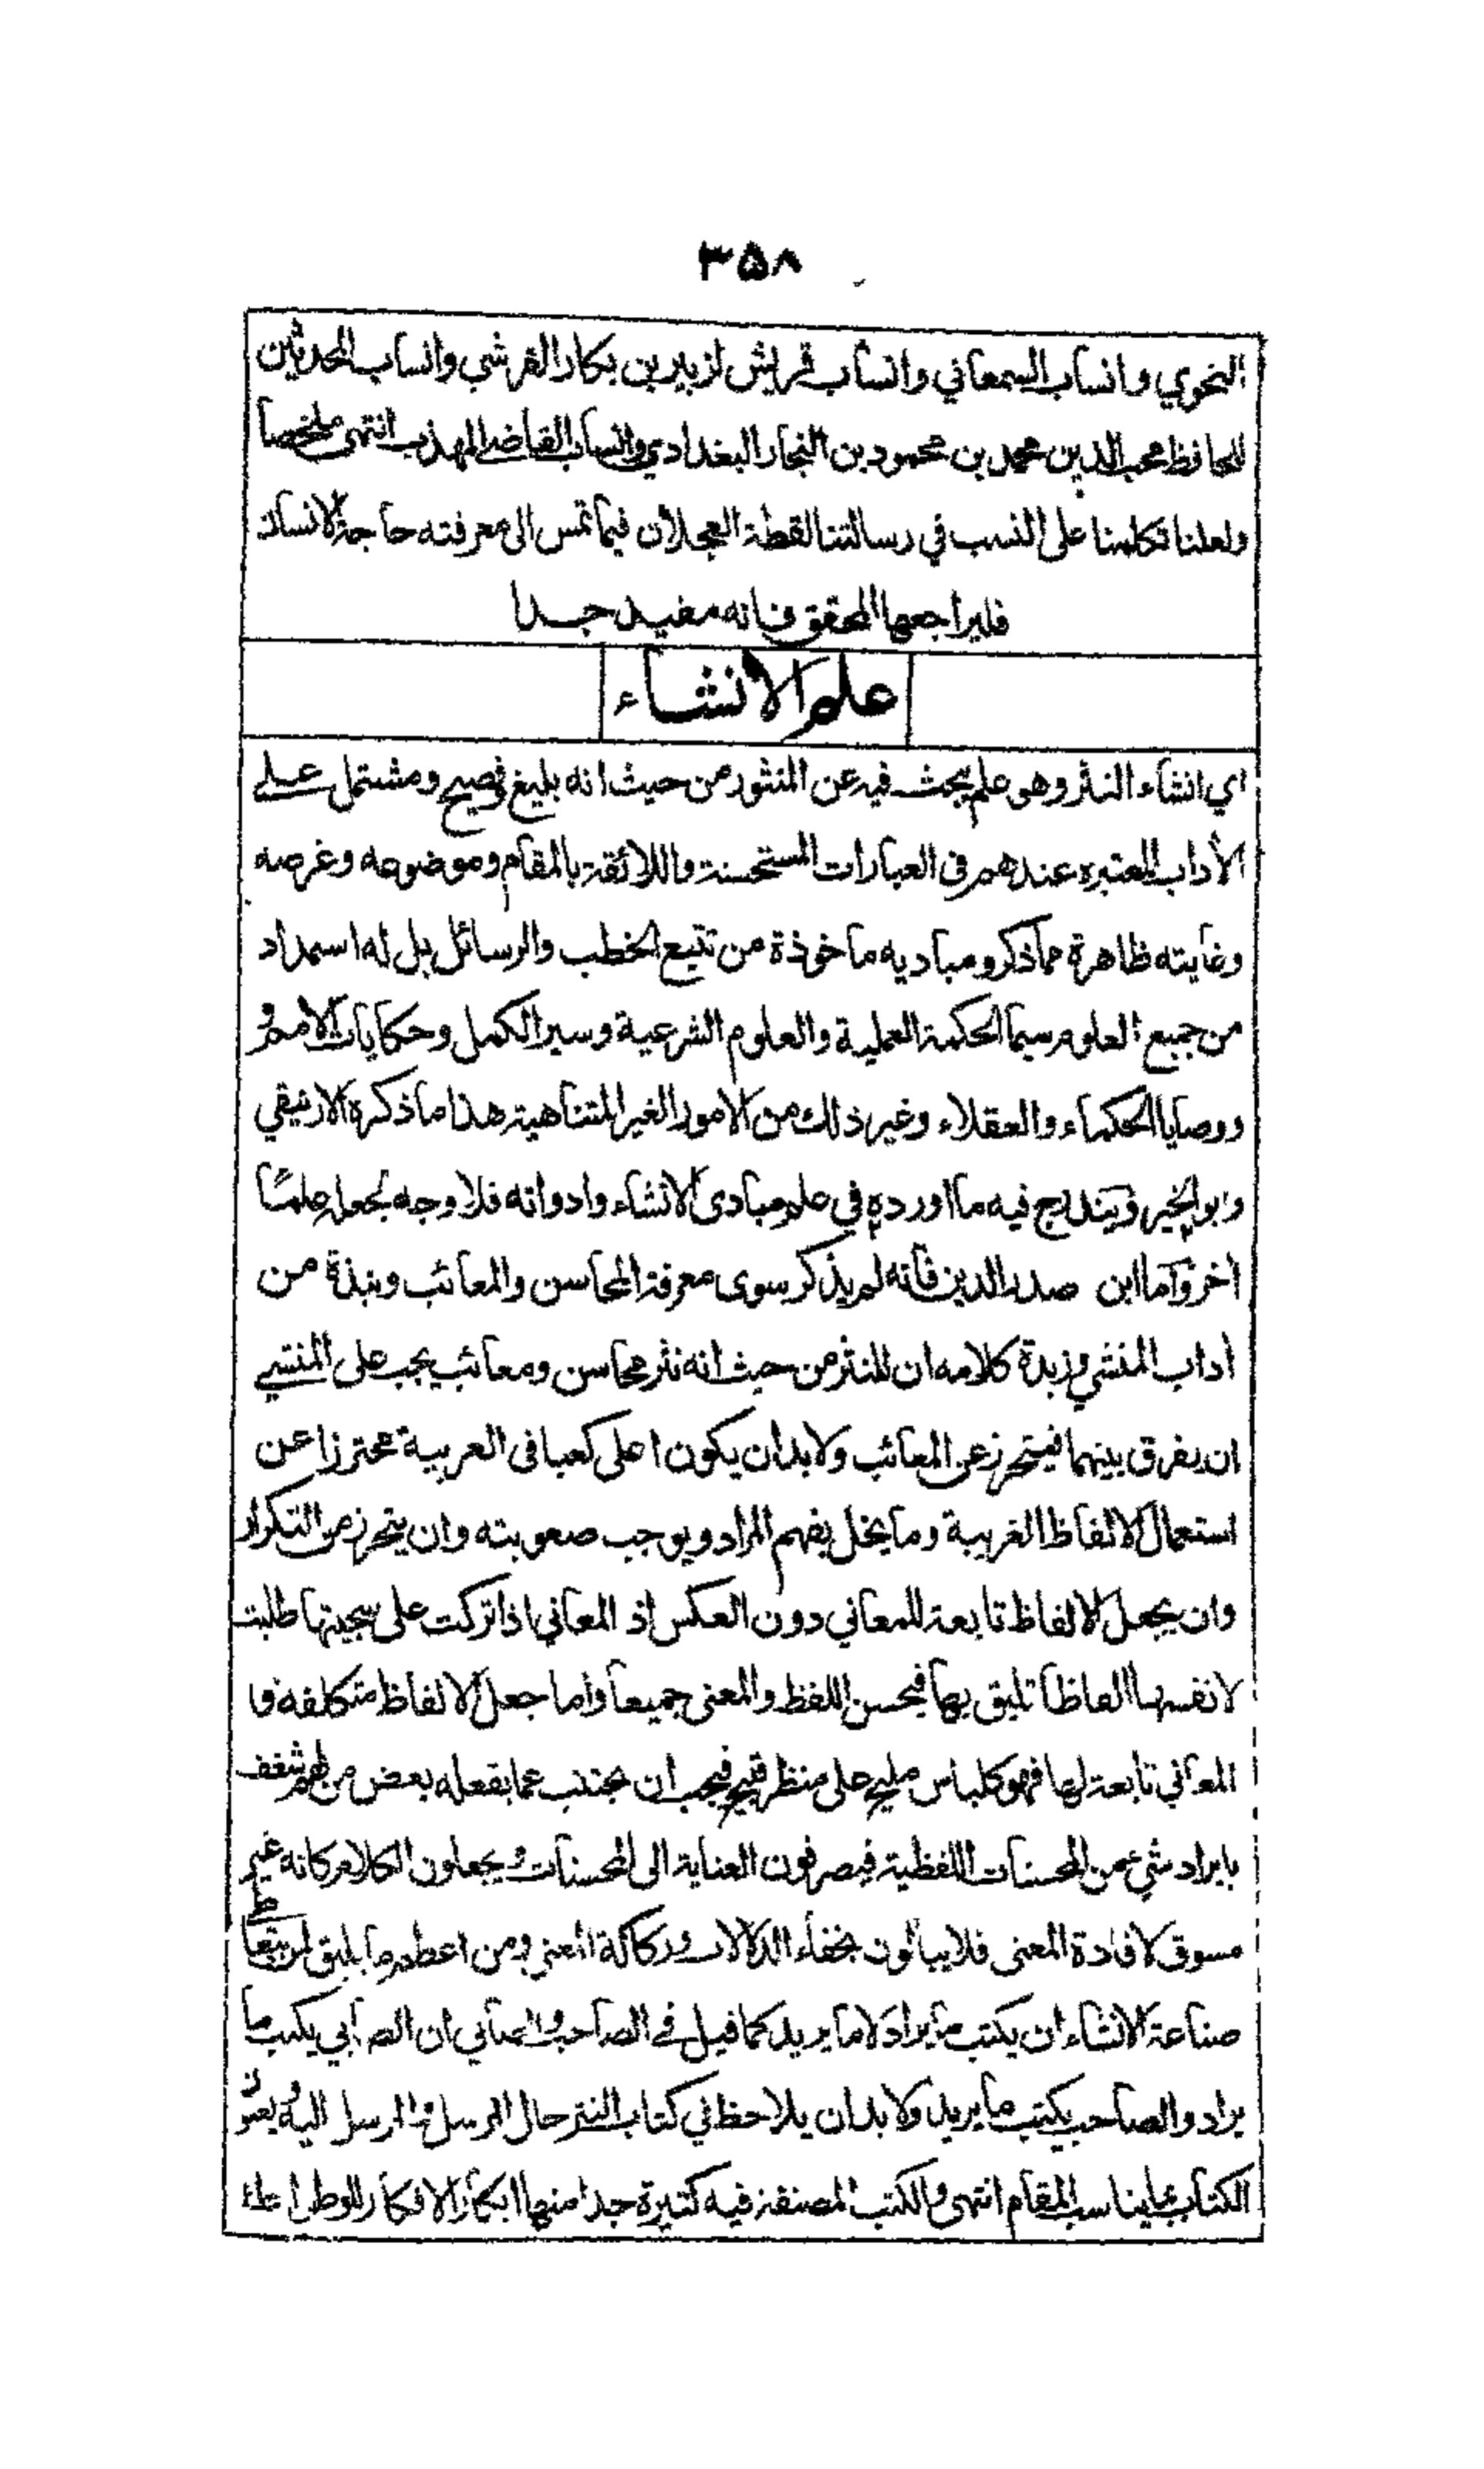 ۳۵۸
النحوي وانساب السمعاني وانساب قريش لزبير بن بكار القرشي وانساب المحدثين
للحافظ محب الدين محمد بن محمود بن النجار البغدادي وانساب القاضي المهذب انتهى ملخصا
ولعلنا تكلمنا على النسب في رسالتنا لقطة العجلان فيما تمس الى معرفته حاجة الانسان
فليراجعها المحقق فانه مفيد جدا
علم الانشاء
اي انشاء النثر وهو علم يبحث فيه عن المنثور من حيث انه بليغ فصيح ومشتمل على
الأداب المعتبره عندهم في العبارات المستحسنة واللائقة بالمقام وموضوعه وغرضه
وغايته ظاهرة مما ذكر ومباديه ماخوذة من تتبع الخطب والرسائل بل له استمداد
من جميع العلوم سيما الحكمة العملية والعلوم الشرعية وسير الكمل وحكايات الامم و
ووصايا الحكماء والعقلاء وغير ذلك من الامور الغير المتناهية هذا ما ذكره الارنيقي
وابو الخير ويندرج فيه ما اورده في علم مبادى الانشاء وادواته فلا وجه لجعله علما
أخر واما ابن صدر الدين فانه لم يذكر سوى معرفة المحاسن والمعائب ونبذة من
أداب المنشي وزبدة كلامه ان للنثر من حيث انه نثر محاسن ومعائب يجب على المنشي
ان يفرق بينهما فيتحرز عن المعائب ولا بد ان يكون اعلى كعبا في العربية محترزا عن
استعمال الالفاظ الغريبة وما يخل بفهم المراد ويوجب صعوبته وان يتحرز من التكرار
وان يجعل الالفاظ تابعة للمعاني دون العكس اذ المعاني اذا تركت على سجيتها طلبت
لانفسها الفاظا تليق بها فيحسن اللفظ والمعنى جميعا واما جعل الالفاظ متكلفة وا
المعاني تابعة لها فهو كلباس مليح على منظر قبيح فيجب ان يجتنب عما يفعله بعض من لهم شغف
بايراد شيء من المحسنات اللفظية فيصرفون العناية الى المحسنات ويجعلون الكلام كانه غير
مسوق لافادة المعنى فلا يبالون بخفاء الدلالات وركاكة المعنى ومن اعظم ما يليق لمن يتعاطى
صناعة الانشاء ان يكتب ما يراد لا ما يريد كما قيل في الصاحب والصابي ان الصابي يكتب ما
يراد والصاحب يكتب ما يريد ولا بد ان يلاحظ في كتاب النثر حال المرسل والمرسل اليه ويعنون
الكتاب بما يناسب المقام انتهى والكتب المصنفة فيه كثيرة جدا منها ابكار الافكار للوطواط